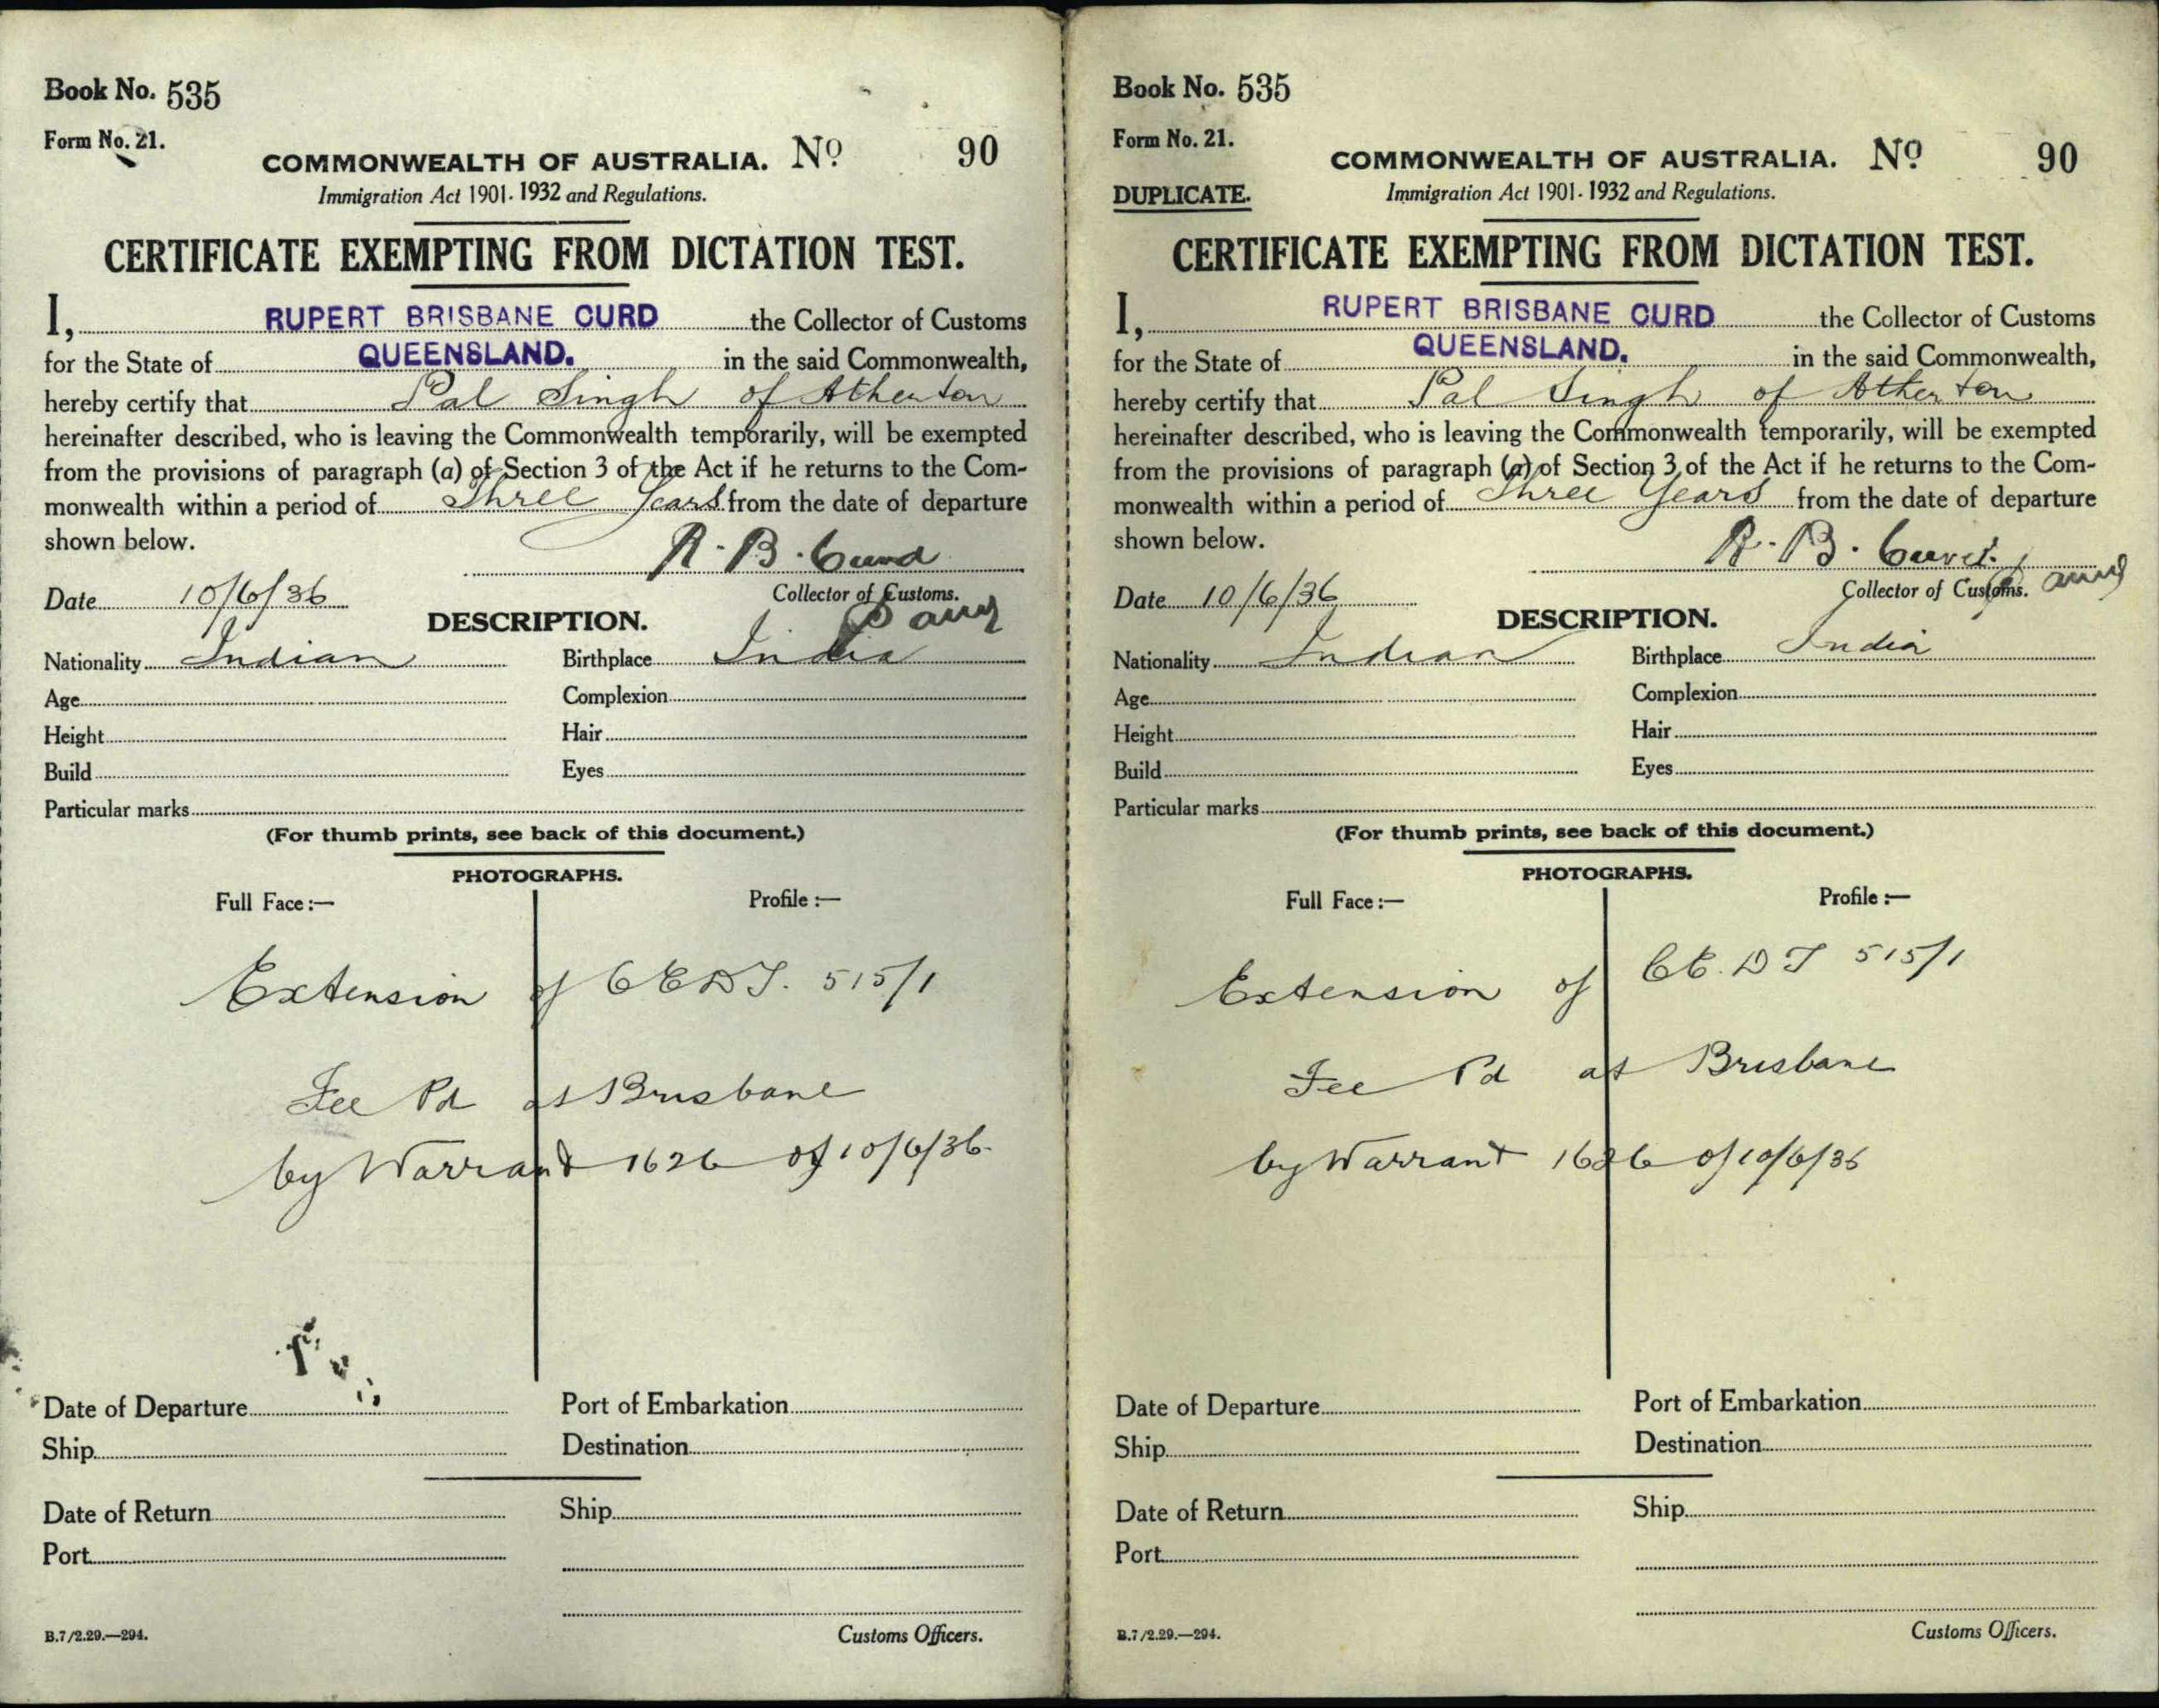 Book No. 535
Form No. 21.
COMMONWEALTH OF AUSTRALIA. No 90
Immigration Act 1901-1932 and Regulations.
CERTIFICATE EXEMPTING FROM DICTATION TEST.
I, RUPERT BRISBANE CURD the Collector of Customs
for the State of QUEENSLAND. in the said Commonwealth,
hereby certify that Pal Singh of Atherton
hereinafter described, who is leaving the Commonwealth temporarily, will be exempted
from the provisions of paragraph (a) of Section 3 of the Act if he returns to the Com-
monwealth within a period of Three Years from the date of departure
shown below.
R. B. Curd
Date 10/6/36
Collector of Customs.
DESCRIPTION.
Nationality Indian Birthplace India
Age Complexion
Height Hair
Build Eyes
Particular marks
(For thumb prints, see back of this document.)
PHOTOGRAPHS.
Full Face:— Profile:—
Extension of CEDT. 515/1
Fee Pd at Brisbane
by Warrant 1626 of 10/6/36.
Date of Departure Port of Embarkation
Ship Destination
Date of Return Ship
Port
B.7/2.29.—294. Customs Officers.
Book No. 535
Form No. 21.
COMMONWEALTH OF AUSTRALIA. No 90
DUPLICATE. Immigration Act 1901-1932 and Regulations.
CERTIFICATE EXEMPTING FROM DICTATION TEST.
I, RUPERT BRISBANE CURD the Collector of Customs
for the State of QUEENSLAND. in the said Commonwealth,
hereby certify that Pal Singh of Atherton
hereinafter described, who is leaving the Commonwealth temporarily, will be exempted
from the provisions of paragraph (a) of Section 3 of the Act if he returns to the Com-
monwealth within a period of Three Years from the date of departure
shown below.
R. B. Curd.
Date 10/6/36
Collector of Customs.
DESCRIPTION.
Nationality Indian Birthplace India
Age Complexion
Height Hair
Build Eyes
Particular marks
(For thumb prints, see back of this document.)
PHOTOGRAPHS.
Full Face:— Profile:—
Extension of CE.DT 515/1
Fee Pd at Brisbane
by Warrant 1626 of 10/6/36
Date of Departure Port of Embarkation
Ship Destination
Date of Return Ship
Port
B.7/2.29.—294. Customs Officers.